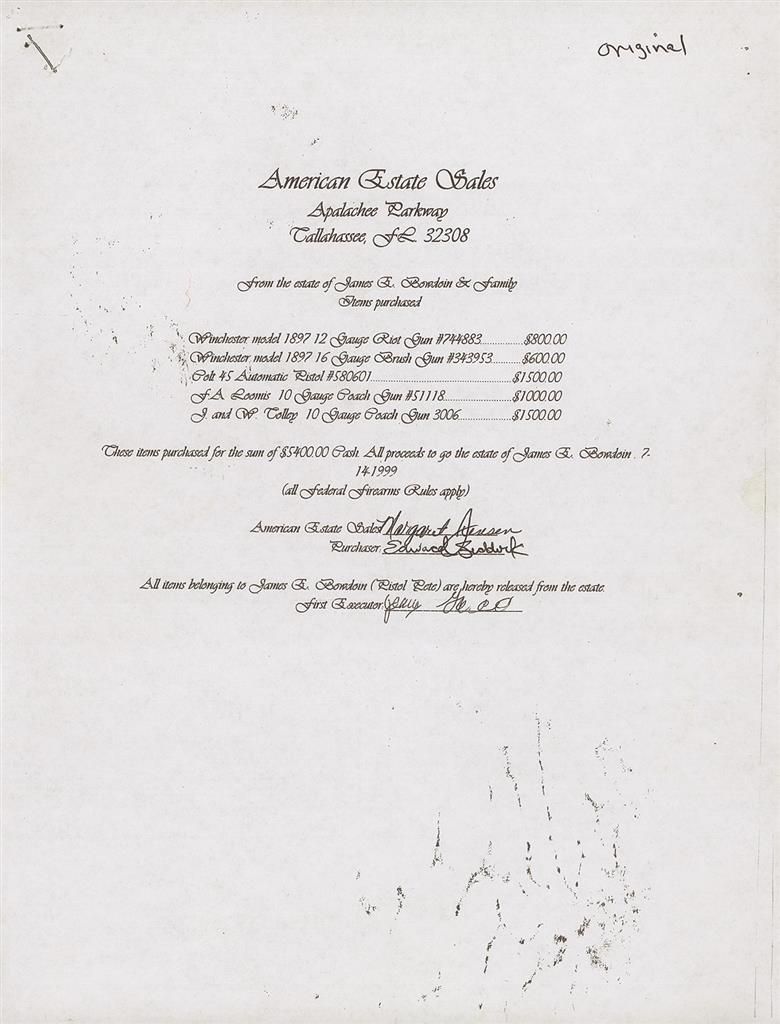 original
American Estate Sales
Apalachee Parkway
Tallahassee, FL. 32308
From the estate of James E. Bowdoin & Family
Items purchased
Winchester model 1897 12 Gauge Riot Gun #744883...............$800.00
Winchester model 1897 16 Gauge Brush Gun #343953..........$600.00
Colt 45 Automatic Pistol #580601.................................................$1500.00
F.A. Loomis 10 Gauge Coach Gun #51118.......................$1000.00
J. and W. Tolley 10 Gauge Coach Gun 3006..................$1500.00
These items purchased for the sum of $5400.00 Cash. All proceeds to go the estate of James E. Bowdoin . 7-
14-1999
(all Federal Firearms Rules apply)
American Estate Sales Margaret Hansen
Purchaser: Edward
All items belonging to James E. Bowdoin (Pistol Pete) are hereby released from the estate.
First Executor: